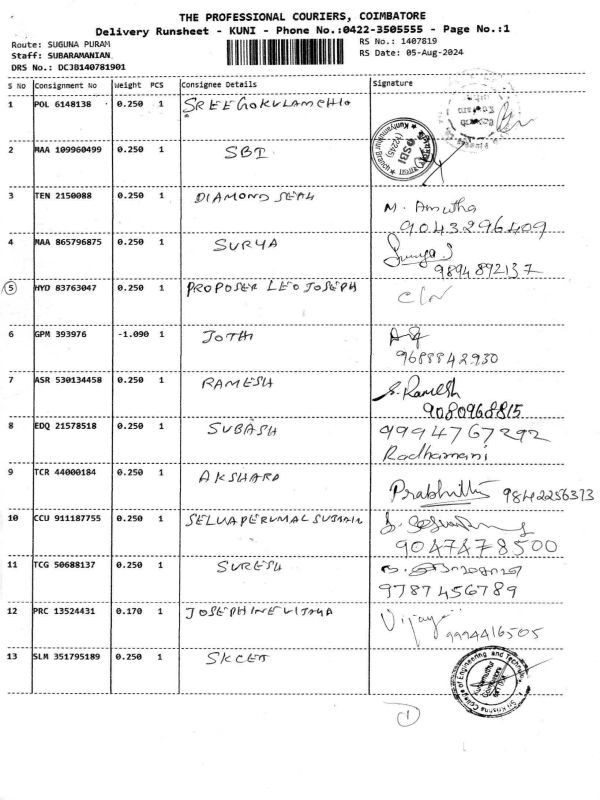 THE PROFESSIONAL COURIERS, COIMBATORE
Delivery Runsheet - KUNI - Phone No.:0422-3505555 - Page No.:1
Route: SUGUNA PURAM
RS No.: 1407819
Staff: SUBARAMANIAN
RS Date: 05-Aug-2024
DRS No.: DCJB140781901
S No Consignment No Weight PCS Consignee Details Signature
1 POL 6148138 0.250 1 SREEGOKULAMCHIO
2 MAA 109960499 0.250 1 SBI
SBI
Kuniyamuthur Branch
3 TEN 2150088 0.250 1 DIAMOND SEAL M. Amutha
9043296409
4 MAA 865796875 0.250 1 SURYA Surya.S
9894892137
5 HYD 83763047 0.250 1 PROPOSER LEO JOSEPH
6 GPM 393976 -1.090 1 JOTHI
9688842930
7 ASR 530134458 0.250 1 RAMESH S. Ramesh
9080968815
8 EDQ 21578518 0.250 1 SUBASH 9994767292
Radhamani
9 TCR 44000184 0.250 1 AKSHARA
Prabhu 9842256373
10 CCU 911187755 0.250 1 SELVAPERUMAL
9047478500
11 TCG 50688137 0.250 1 SURESH
9787456789
12 PRC 13524431 0.170 1 JOSEPHINEVIJAYA Vijaya
9994416505
13 SLM 351795189 0.250 1 SKCET
Sri Krishna College of Engineering and Technology
Kuniamuthur
Coimbatore
1